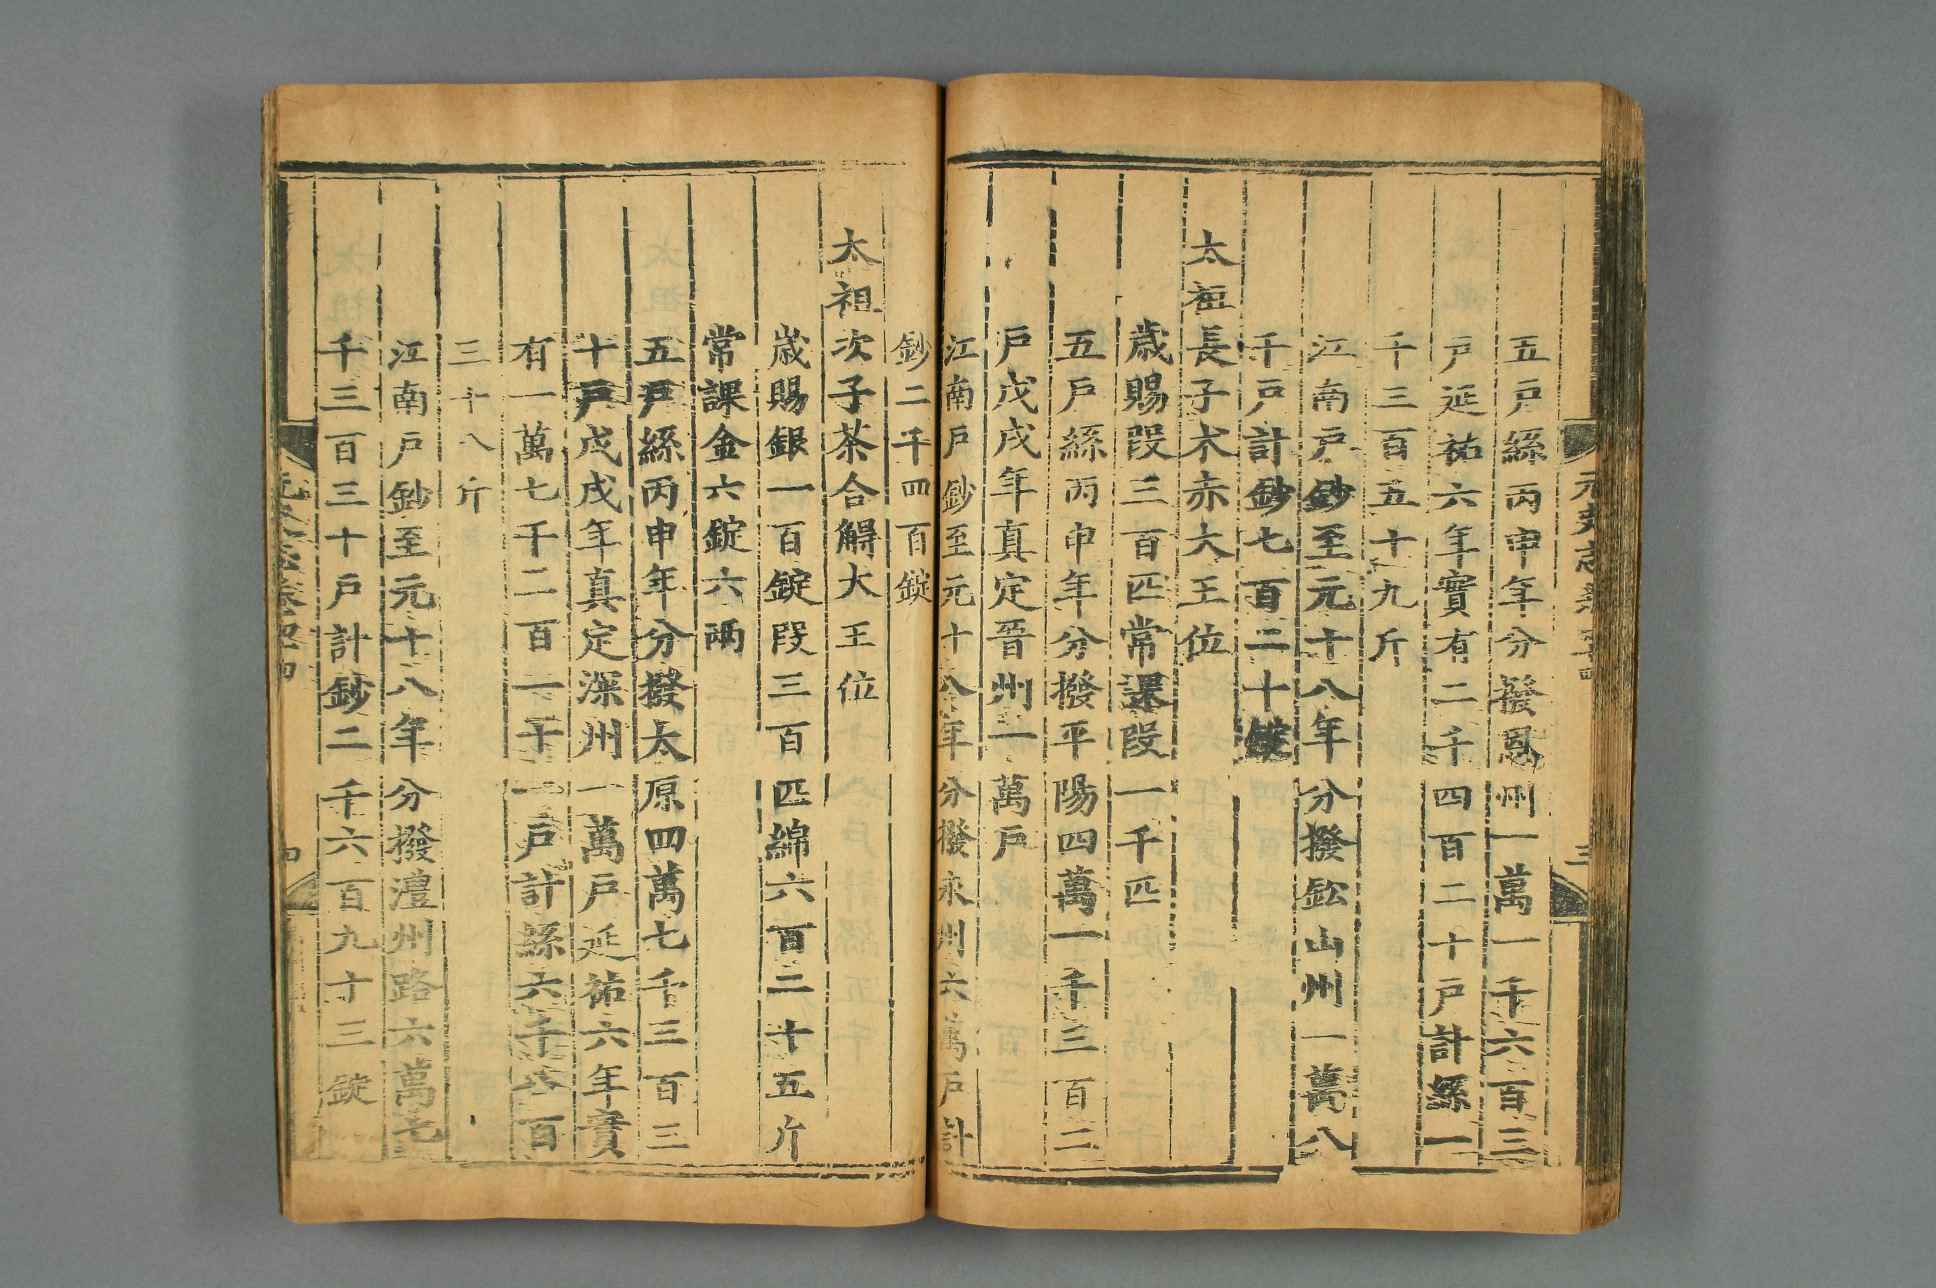 元史志卷四十四
三
五戶絲丙申年分撥恩州一萬一千六百三
戶延祐六年實有二千四百二十戶計絲一
千三百五十九斤
江南戶鈔至元十八年分撥鉛山州一萬八
千戶計鈔七百二十錠
太祖長子朮赤大王位
歲賜段三百匹常課段一千匹
五戶絲丙申年分撥平陽四萬一千三百二
戶戊戌年真定晉州一萬戶
江南戶鈔至元十八年分撥永州六萬戶計
鈔二千四百錠
太祖次子茶合䚟大王位
歲賜銀一百錠段三百匹綿六百二十五斤
常課金六錠六兩
五戶絲丙申年分撥太原四萬七千三百三
十戶戊戌年真定深州一萬戶延祐六年實
有一萬七千二百一十一戶計絲六千八百
三十八斤
江南戶鈔至元十八年分撥澧州路六萬七
千三百三十戶計鈔二千六百九十三錠
元史志卷四十四
四